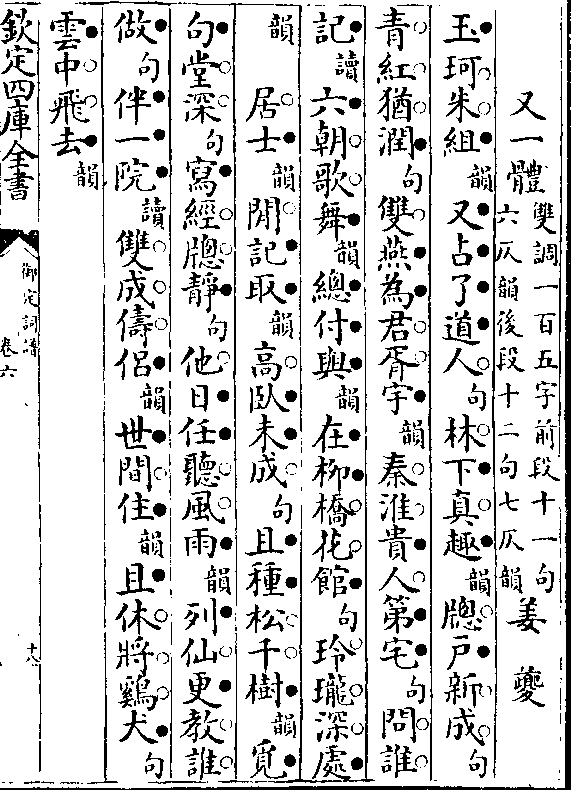 又一體雙調一百五字前段十一句六仄韻後段十二句七仄韻姜夔
玉珂朱組韻又占了道人句林下真趣韻牕戶新成句
青紅猶潤句雙燕為君胥宇韻秦淮貴人第宅句問誰
記讀六朝歌舞韻總付與韻在柳橋花館句玲瓏深處
韻居士韻閒記取韻高臥未成句且種松千樹韻覓
句堂深句寫經牕靜句他日任聽風雨韻列仙更教誰
做句伴一院讀雙成儔侶韻世間住韻且休將鷄犬句
雲中飛去韻
欽定四庫全書
御定詞譜
卷六